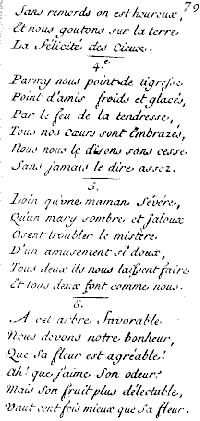 79
Sans remords on est heureux,
Et nous goutons sur la terre
La Félicité des Cieux.
4e
Parmy nous point de tigresse
Point d'amis froids et glacés,
Par le feu de la tendresse,
Tous nos cœurs sont Embrazés,
Nous nous le disons sans cesse
Sans jamais le dire assez.
5.
Loin qu'une maman Sévére,
Qu'un mary sombre et jaloux
Osent troubler le mistére
D'un amusement si doux,
Tous deux ils nous laissent faire
Et tous deux font comme nous.
6.
A cet arbre favorable
Nous devons notre bonheur,
Que sa fleur est agréable!
Ah! que j'aime son odeur!
Mais son fruit plus délectable,
Vaut cent fois mieux que sa fleur.